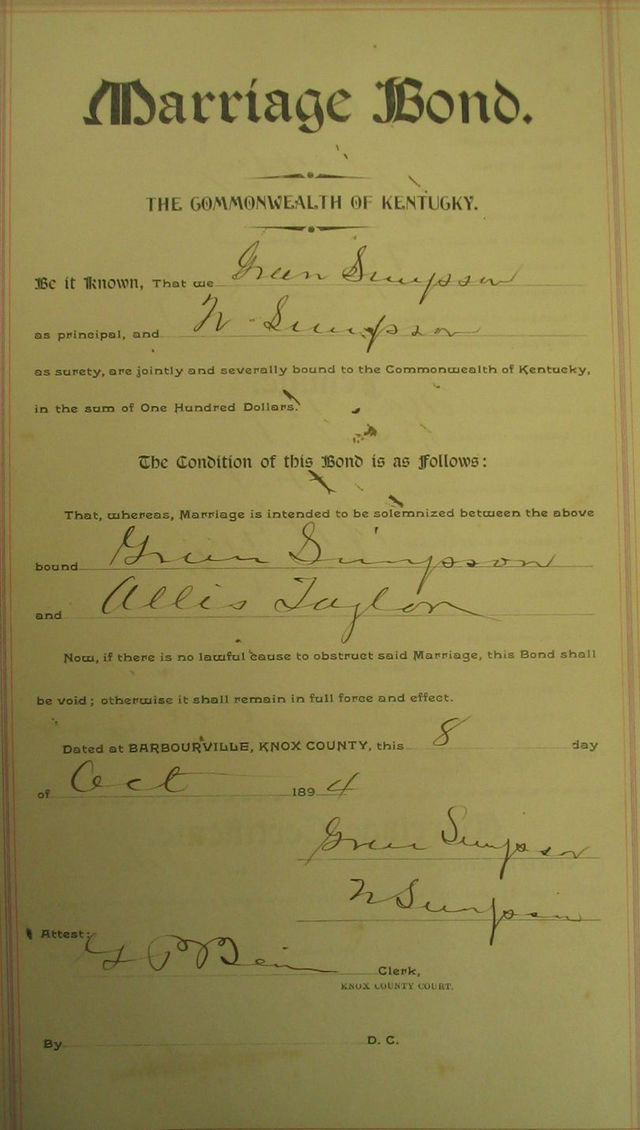 Marriage Bond.
THE COMMONWEALTH OF KENTUCKY.
Be it Known, That we Green Simpson
as principal, and N Simpson
as surety, are jointly and severally bound to the Commonwealth of Kentucky,
in the sum of One Hundred Dollars.
The Condition of this Bond is as Follows:
That, whereas, Marriage is intended to be solemnized between the above
bound Green Simpson
and Allis Taylor
Now, if there is no lawful cause to obstruct said Marriage, this Bond shall
be void; otherwise it shall remain in full force and effect.
Dated at BARBOURVILLE, KNOX COUNTY, this 8 day
of Oct 1894
Green Simpson
N Simpson
Attest:
Clerk,
KNOX COUNTY COURT.
By D. C.